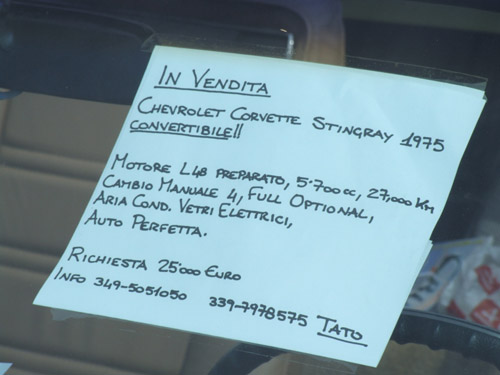 IN VENDITA
CHEVROLET CORVETTE STINGRAY 1975
CONVERTIBILE!!
MOTORE L48 PREPARATO, 5.700cc, 27,000 Km
CAMBIO MANUALE 4, FULL OPTIONAL,
ARIA COND. VETRI ELETTRICI,
AUTO PERFETTA.
RICHIESTA 25'000 EURO
INFO 349-5051050 339-7978575 TATO